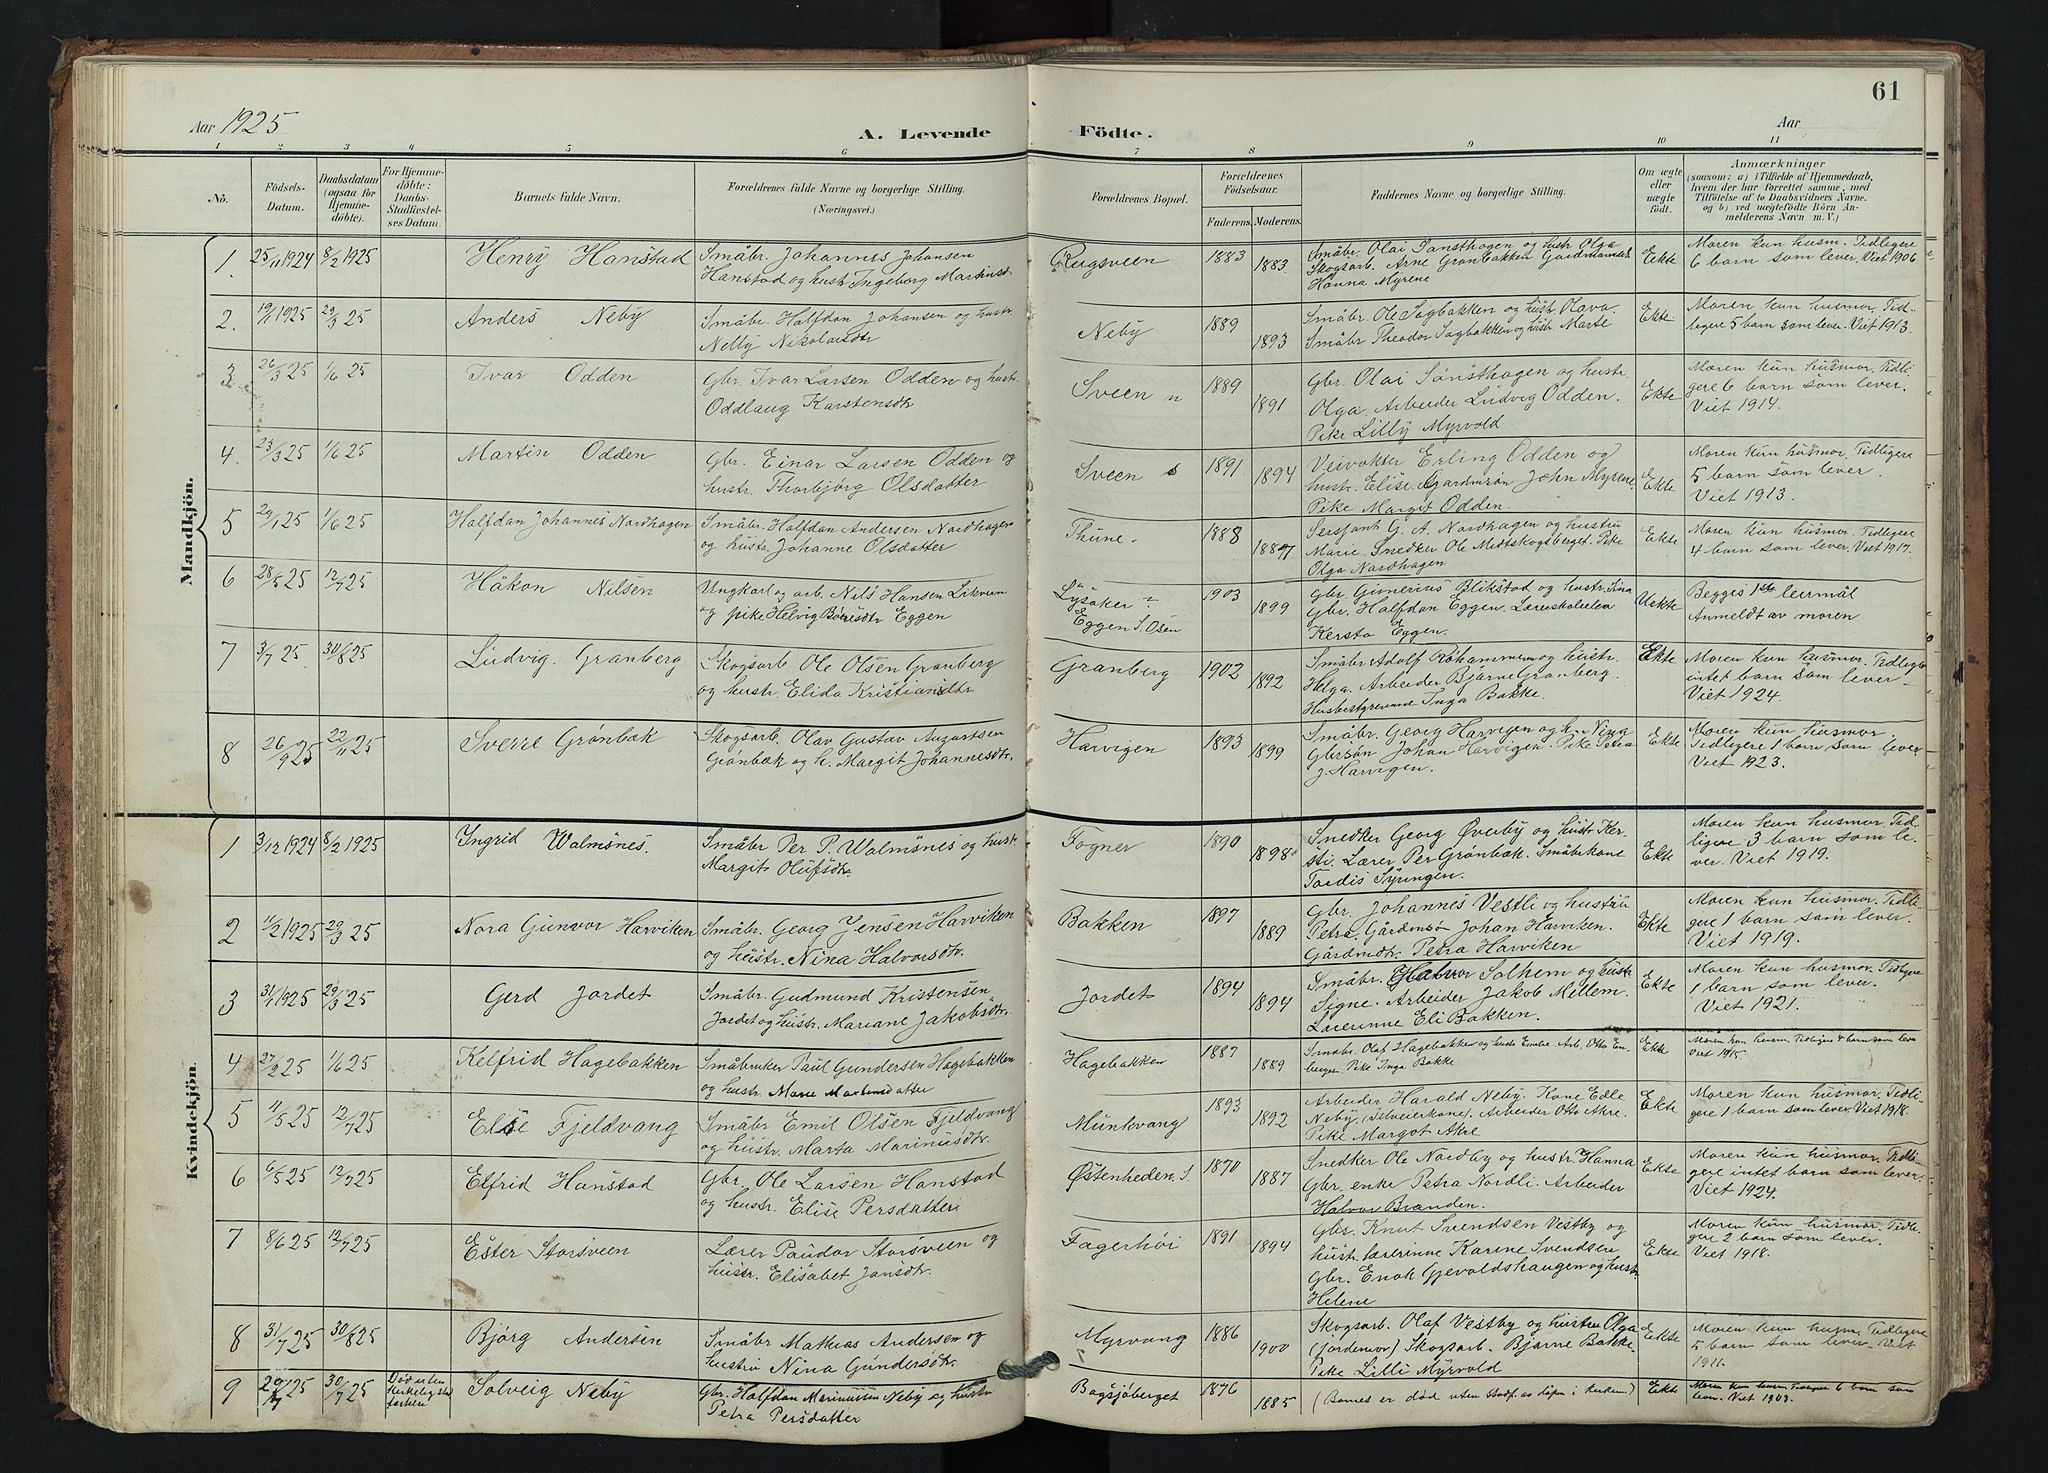 61
Aar 1925
A. Levende Födte.
Aar
1 2 3 4 5 6 7 8 9 10 11
No.
Födsels-Datum.
Daabsdatum (ogsaa for Hjemme-döbte).
For Hjemme-döbte: Daabs-Stadfæstel-ses Datum.
Barnets fulde Navn.
Forældrenes fulde Navne og borgerlige Stilling.
(Næringsvei.)
Forældrenes Bopæl.
Forældrenes Födselsaar.
Faderens. Moderens.
Faddernes Navne og borgerlige Stilling.
Om ægte eller uægte födt.
Anmærkninger
(saasom: a) i Tilfælde af Hjemmedaab, hvem der har forrettet samme, med Tilföielse af to Daabsvidners Navne, og b) ved uægtefödte Börn An-melderens Navn m. V.)
Mandkjön.
1. 25/11 1924 8/2 1925 Henry Hanstad
Småbr. Johannes Johansen
Hanstad og hustr. Ingeborg
Rugsveen 1883 1883
Småbr. Olai Sønsthagen og hustr. Olga
Skogsarb. Arne Grønbakken
Hanna Myrene
Ekte
Moren kun husm. Tidligere
6 barn som lever. Viet 1906
2. 1925 29/3 25 Anders Neby
Småbr. Halfdan Johansen og hustr
Nelly Nikolaisdtr
Neby 1889 1893
Småbr. Ole Sagbakken og hustr. Olava.
Småbr Theodor Sagbakken og hustr. Marte
Ekte
Moren kun husmor. Tid-
ligere 5 barn som lever. Viet 1913.
3. 26/3 25 1/6 25 Ivar Odden
Gbr. Ivar Larsen Odden og hustr.
Oddlaug Karstensdtr
Sveen n 1889 1891
Gbr. Olai Sønsthagen og hustr.
Olga. Arbeider Ludvig Odden.
Pike Lilly Myrvold
Ekte
Moren kun husmor. Tidli-
gere 6 barn som lever.
Viet 1914.
4. 23/3 25 1/6 25 Martin Odden
Gbr. Einar Larsen Odden og
hustr. Thorbjørg Olsdatter
Sveen s 1891 1894
Veivokter Erling Odden og
hustr. Elise. Gardmsøn John Myrene.
Pike Margit Odden.
Ekte
Moren kun husmor. Tidligere
5 barn som lever.
Viet 1913.
5 29/1 25 1/6 25 Halfdan Johannes Nordhagen
Småbr. Halfdan Andersen Nordhagen
og hustr. Johanne Olsdatter
Thune. 1888 1889
Sersjant G. A. Nordhagen og hustru
Marie. Snedker Ole Midtskogsberget. Pike
Olga Nordhagen
Ekte
Moren kun husmor. Tidligere
4 barn som lever. Viet 1917.
6 28/5 25 12/7 25 Håkon Nilsen
Ungkarl og arb. Nils Hansen
og pike Helvig Eggen
Lysaker
Eggen S. Osen
1903 1899
Gbr. Gunerius Blikstad og hustr.
Gbr. Halfdan Eggen.
Kersta Eggen.
Uekte
Begges 1ste leirmål
Anmeldt av moren
7 3/7 25 30/8 25 Ludvig. Granberg
Skogsarb Ole Olsen Granberg
og hustr. Elida Kristiansdtr
Granberg 1902 1892
Småbr Adolf og hustr.
Helga. Arbeider Bjarne Granberg.
Inga Bakke.
Ekte
Moren kun husmor. Tidligere
intet barn som lever
Viet 1924.
8 26/9 25 22/11 25 Sverre Grønbæk
Skogsarb. Olav Gustav Augustsen
Grønbæk og h. Margit Johannesdtr.
Harvigen 1893 1899
Småbr. Georg Harvigen og h. Nina
Gbrsøn Johan Harvigen. Pike Petra
Harvigen.
Ekte
Moren kun husmor.
Tidligere 1 barn som lever
Viet 1923.
Kvindekjön.
1 3/12 1924 8/2 1925 Ingrid Walmsnes.
Småbr Per P. Walmsnes og hustr.
Margit Olufsdtr.
Fogner 1890 1898
Snedker Georg Øverby og hustr. Ker-
sti. Lærer Per Grønbæk. Småbrkone
Tordis Syringen.
Ekte
Moren kun husmor. Tid-
ligere 3 barn som le-
ver. Viet 1919.
2 11/2 1925 29/3 25 Nora Gunvor Harviken
Småbr. Georg Jensen Harviken
og hustr. Nina Halvorsdtr.
Bakken 1897 1889
Gbr. Johannes Vestli og hustru
Petra. Gårdmsø Johan Harviken.
Gårdmdtr. Petra Harviken
Ekte
Moren kun husmor. Tidli-
gere 1 barn som lever.
Viet 1919.
3 31/1 1925 29/3 25 Gerd Jordet
Småbr. Gudmund Kristensen
Jordet og hustr. Mariane Jakobsdtr.
Jordet 1894 1894
Småbr. Halvor Solhem og hustr
Signe. Arbeider Jakob Mellem.
Lærerinne Eli Bakken.
Ekte
Moren kun husmor. Tidligere
1 barn som lever.
Viet 1921.
4 27/2 25 1/6 25 Kelfrid Hagebakken
Småbruker Paul Gundersen Hagebakken
og hustr. Marie
Hagebakken 1887 1889
Småbr. Olaf Hagebakken og hustr. Arb. Otto En-
berget Pike Inga Bakke
Ekte
Moren kun husm. Tidligere 4 barn som lever
Viet 1915.
5 11/5 25 12/7 25 Else Fjeldvang
Småbr Emil Olsen Fjeldvang
og hustr. Marta Marinusdtr.
Munkvang 1893 1892
Arbeider Harald Neby. Kone Edle
Neby. Arbeider Otto Akre.
Pike Margot Akre
Ekte
Moren kun husmor. Tidli-
gere 1 barn som lever Viet 1918.
6 6/5 25 12/7 25 Elfrid Hanstad
Gbr. Ole Larsen Hanstad
og hustr. Elise Persdatter
Østenheden. S. 1870 1887
Snedker Ole Nordby og hustr. Hanna
Gbr. enke Petra Nordli. Arbeider
Halvor Brænden.
Ekte
Moren kun husmor. Tidli-
gere intet barn som lever.
Viet 1924.
7 8/6 25 12/7 25 Ester Storsveen
Lærer Paudor Storsveen og
hustr. Elisabet Jansdtr.
Fagerhøi 1891 1894
Gbr. Knut Svendsen Vestby og
hustr. lærerinne Karine Svendsen
Gbr. Enok Gjevoldshaugen og hustr
Helene
Ekte
Moren kun husmor. Tidli-
gere 2 barn som lever.
Viet 1918.
8 31/7 25 30/8 25 Bjørg Andersen
Småbr Mathias Andersen og
hustru Nina Gundersdtr.
Myrvang 1886 1900
Skogsarb. Olaf Vestby og hustru Olga
(jordemor) Skogsarb. Bjarne Bakke.
Pike Lilli Myrvold
Ekte
Moren kun husm. Tidligere
5 barn som lever. Viet
1921.
9 25 30/7 25 Solveig Neby
Gbr. Halfdan Marinussen Neby og hustr
Petra Persdatter
Bogsjøberget 1876 1885
(Barnet er død uten stadf. av dåpen i kirken)
Ekte
Moren kun husmor 6 barn som
lever. Viet 1903.